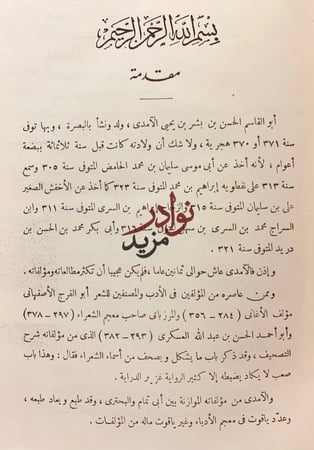 بسم الله الرحمن الرحيم
مقدمة
أبو القاسم الحسن بن بشر بن يحيى الآمدى، ولد ونشأ بالبصرة، وبها توفى
سنة ٣٧١ أو ٣٧٠ هجرية، ولا شك أن ولادته كانت قبل سنة ثلاثمائة ببضعة
أعوام، لأنه أخذ عن أبى موسى سليمان بن محمد الحامض المتوفى سنة ٣٠٥ وسمع
سنة ٣١٣ على نفطويه إبراهيم بن محمد المتوفى سنة ٣٢٣ كما أخذ عن الأخفش الصغير
على بن سليمان المتوفى سنة ٣١٥ إبراهيم بن السرى المتوفى سنة ٣١١ وابن
السراج محمد بن السرى بن سهل ٣١٦ وأبى بكر محمد بن الحسن بن
دريد المتوفى سنة ٣٢١ .
نوادر
مزيد
وإذن فالآمدى عاش حوالى ثمانين عاما، فلم يكن عجيبا أن تكثر مطالعاته ومؤلفاته.
وممن عاصره من المؤلفين فى الأدب والمصنفين للشعر أبو الفرج الأصفهانى
مؤلف الأغانى (٢٨٤ – ٣٥٦) والمرزبانى صاحب معجم الشعراء (٢٩٧ – ٣٧٨)
وأبو أحمد الحسن بن عبد الله العسكرى (٢٩٣ – ٣٨٢) الذى من مؤلفاته شرح
التصحيف، وقد ذكر باب ما يشكل ويصحف من أسماء الشعراء فقال : وهذا باب
صعب لا يكاد يضبطه إلا كثير الرواية غزير الدراية.
والآمدى من مؤلفاته الموازنة بين أبى تمام والبحترى، وقد طبع ويعاد طبعه،
وعدّد ياقوت فى معجم الأدباء وغير ياقوت ماله من المؤلفات.